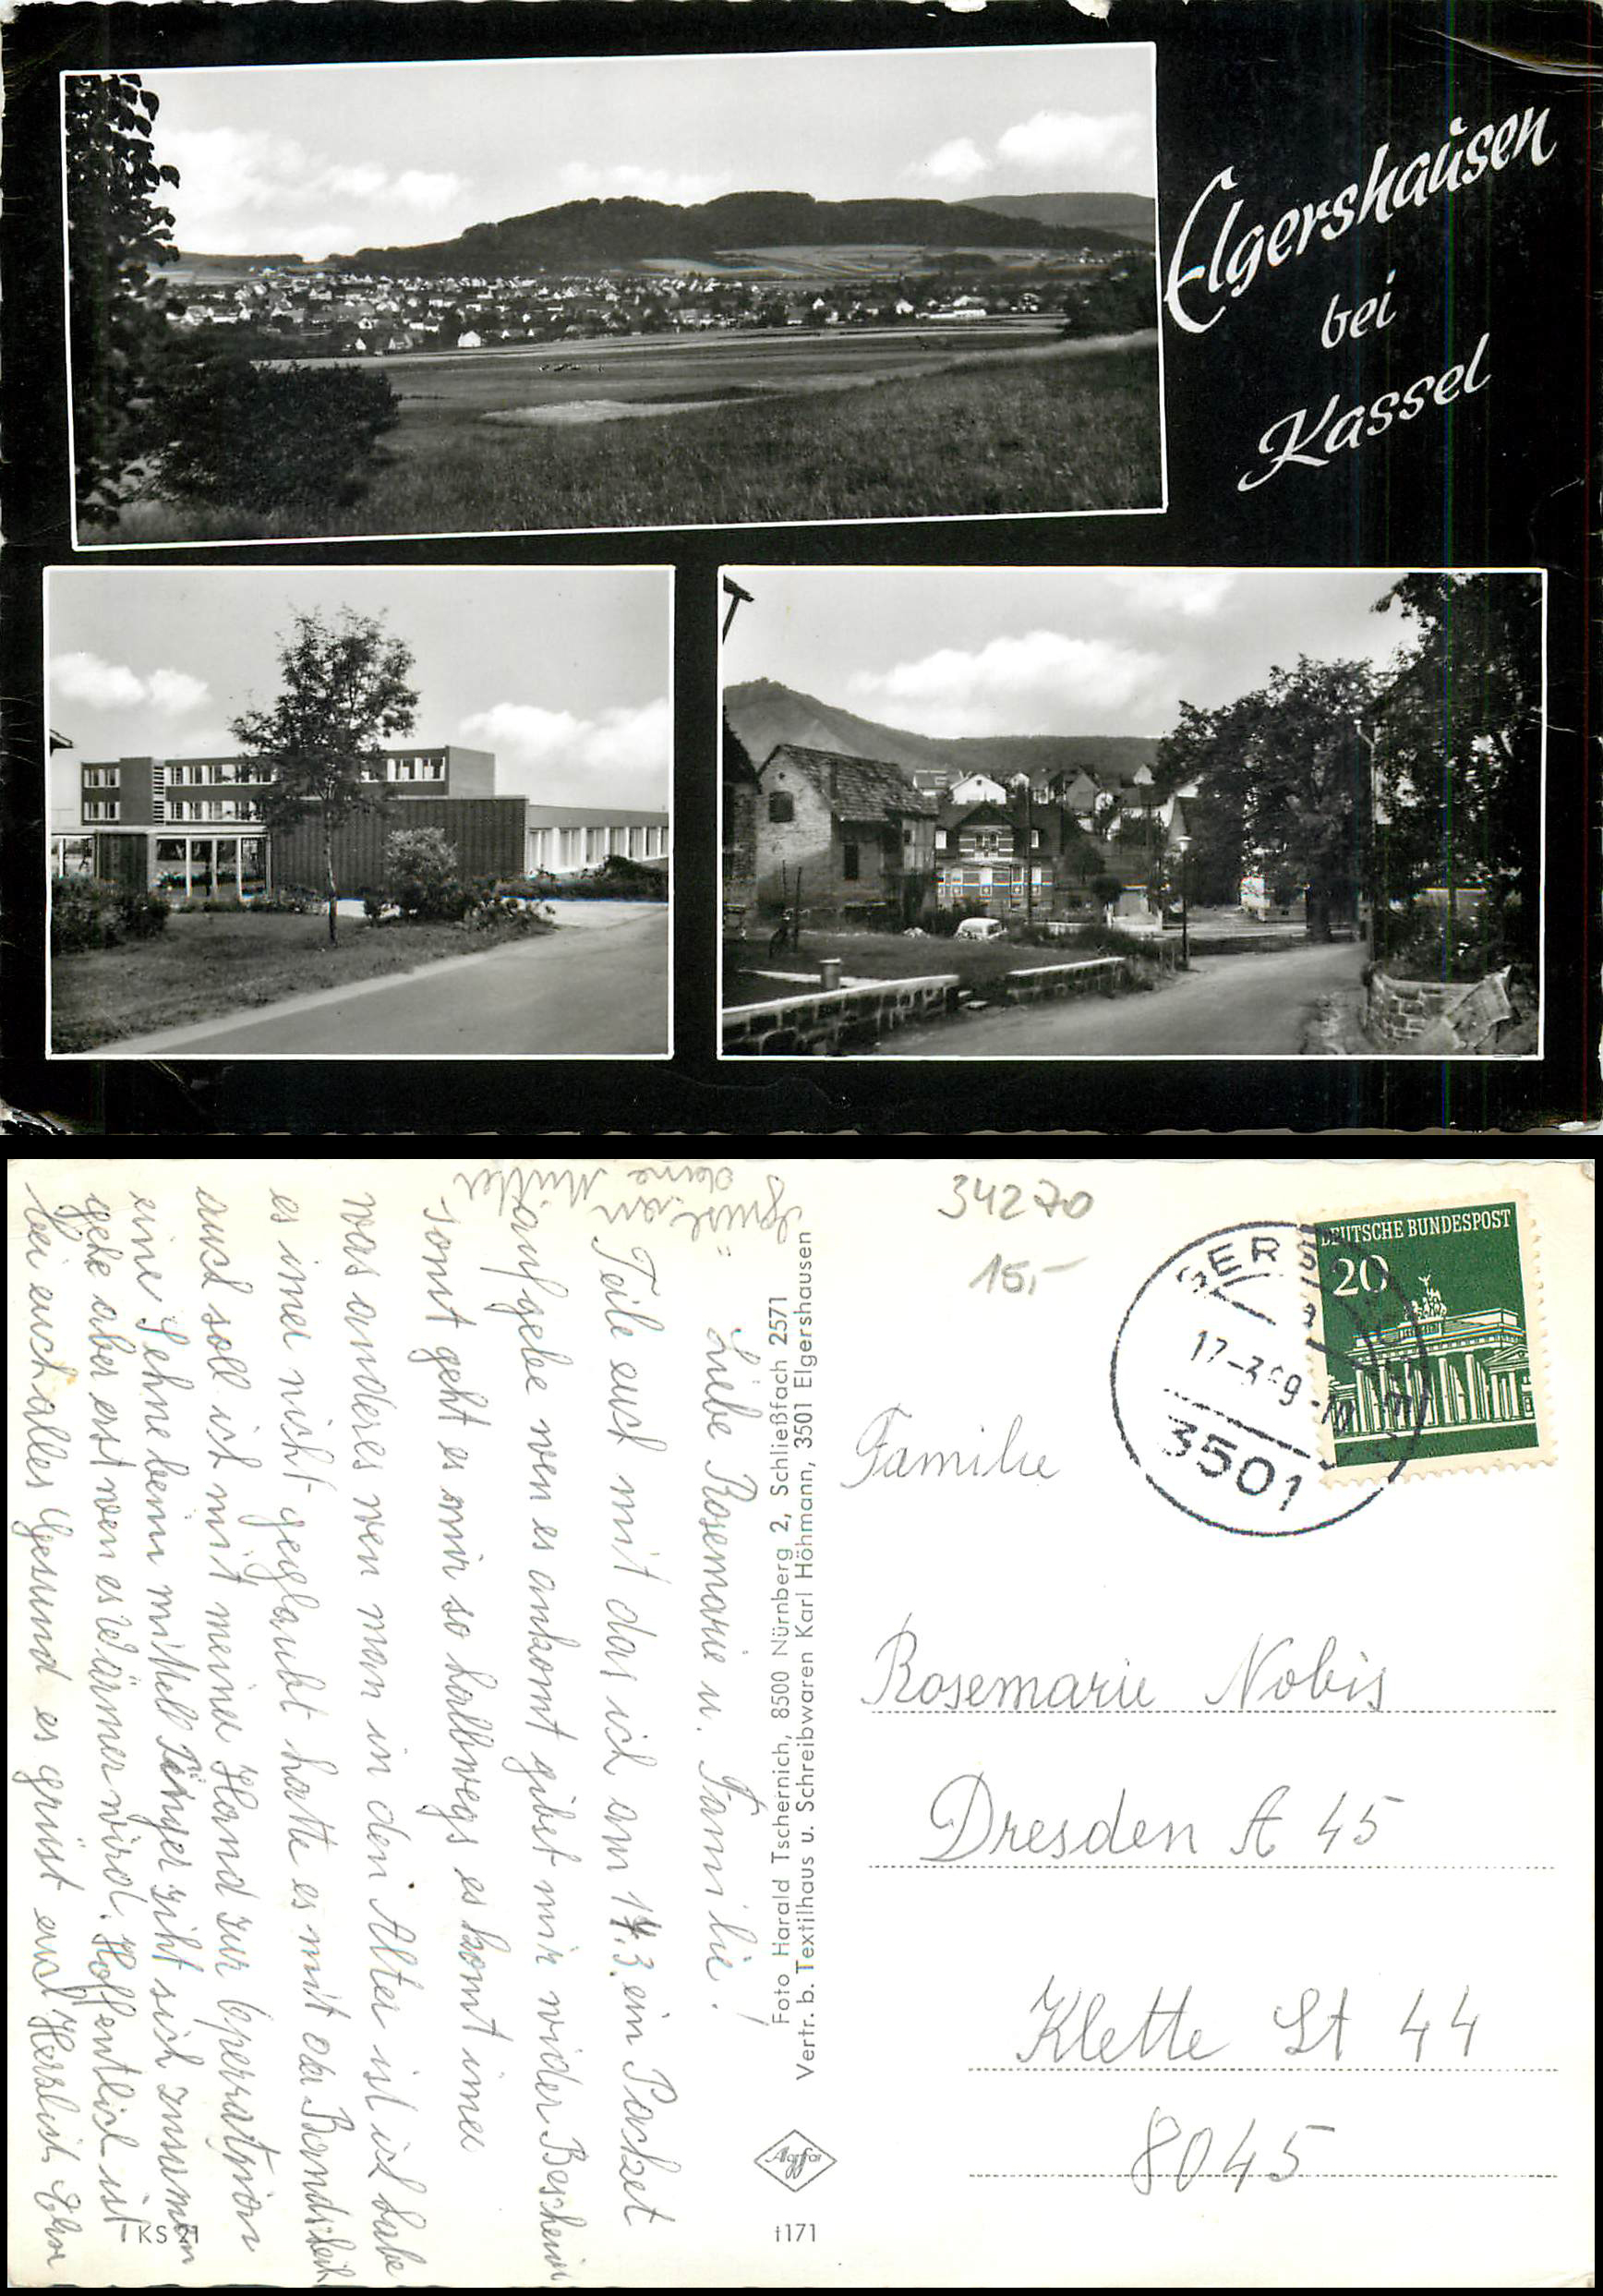 Elgershausen
bei
Kassel
34270
15,-
DEUTSCHE BUNDESPOST
20
3501
Familie
Rosemarie Nobis
Dresden A 45
Klette St 44
8045
Foto Harald Tschernich, 8500 Nürnberg 2, Schließfach 2571
Vertr. b. Textilhaus u. Schreibwaren Karl Höhmann, 3501 Elgershausen
Agfa
t171
KS 21
Liebe Rosemarie u. Familie!
Teile euch mit das ich am 14.3. ein Packet
aufgebe wen es ankomt gibst mir wider Bescheid
sonst geht es mir so halbwegs es komt imer
was anderes wen man in den Alter ist ich habe
es imer nicht geglaubt hatte es mit der Bandscheib
auch soll ich mit meine Hand zur Operatjon
eine Sehne beim mittell Finger ziht sich zusamen
gehe aber erst wen es Wärmer wird. Hoffentlich ist
bei euch alles Gesund es grüst euch Herzlich
deine Mutter